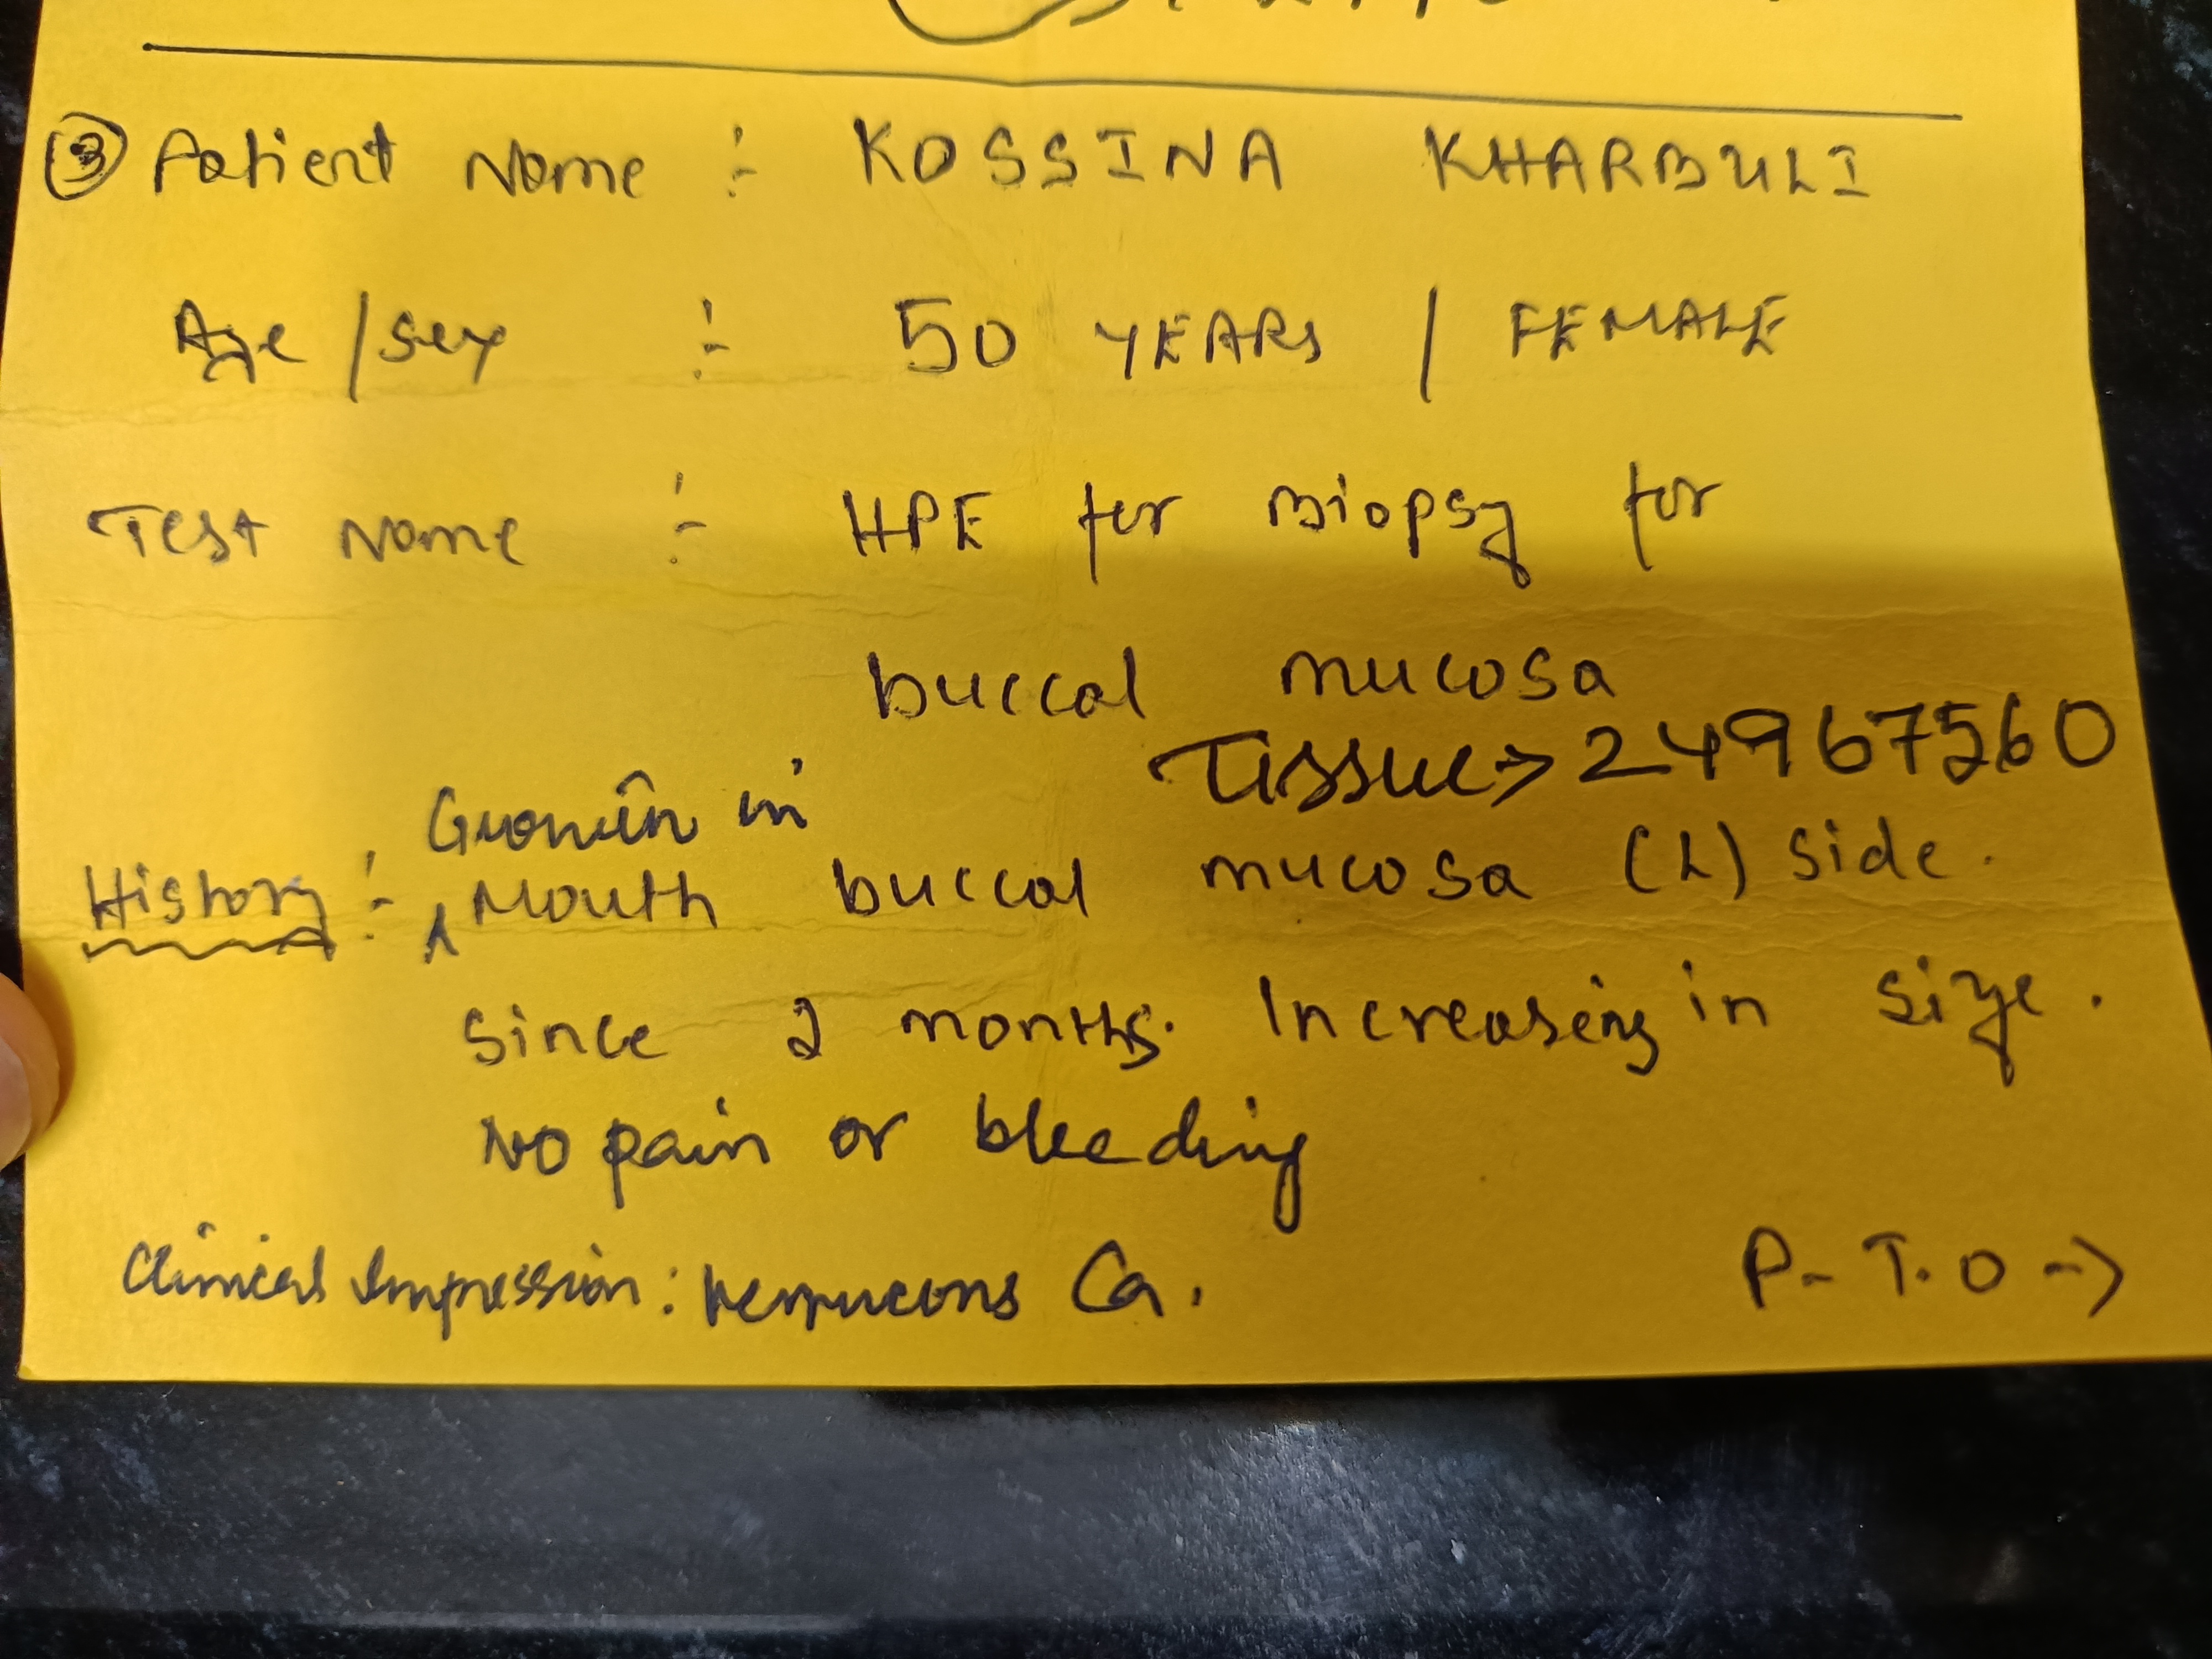 ③ Patient Name :- KOSSINA KHARBULI
Age / sex :- 50 YEARS / FEMALE
Test Name :- HPE for Biopsy for
buccal mucosa
Tissue → 24967560
Growth in
History :- ^ Mouth buccal mucosa (L) side.
Since 2 months. Increasing in size.
No pain or bleeding
Clinical Impression : Verrucous Ca.
P.T.O →